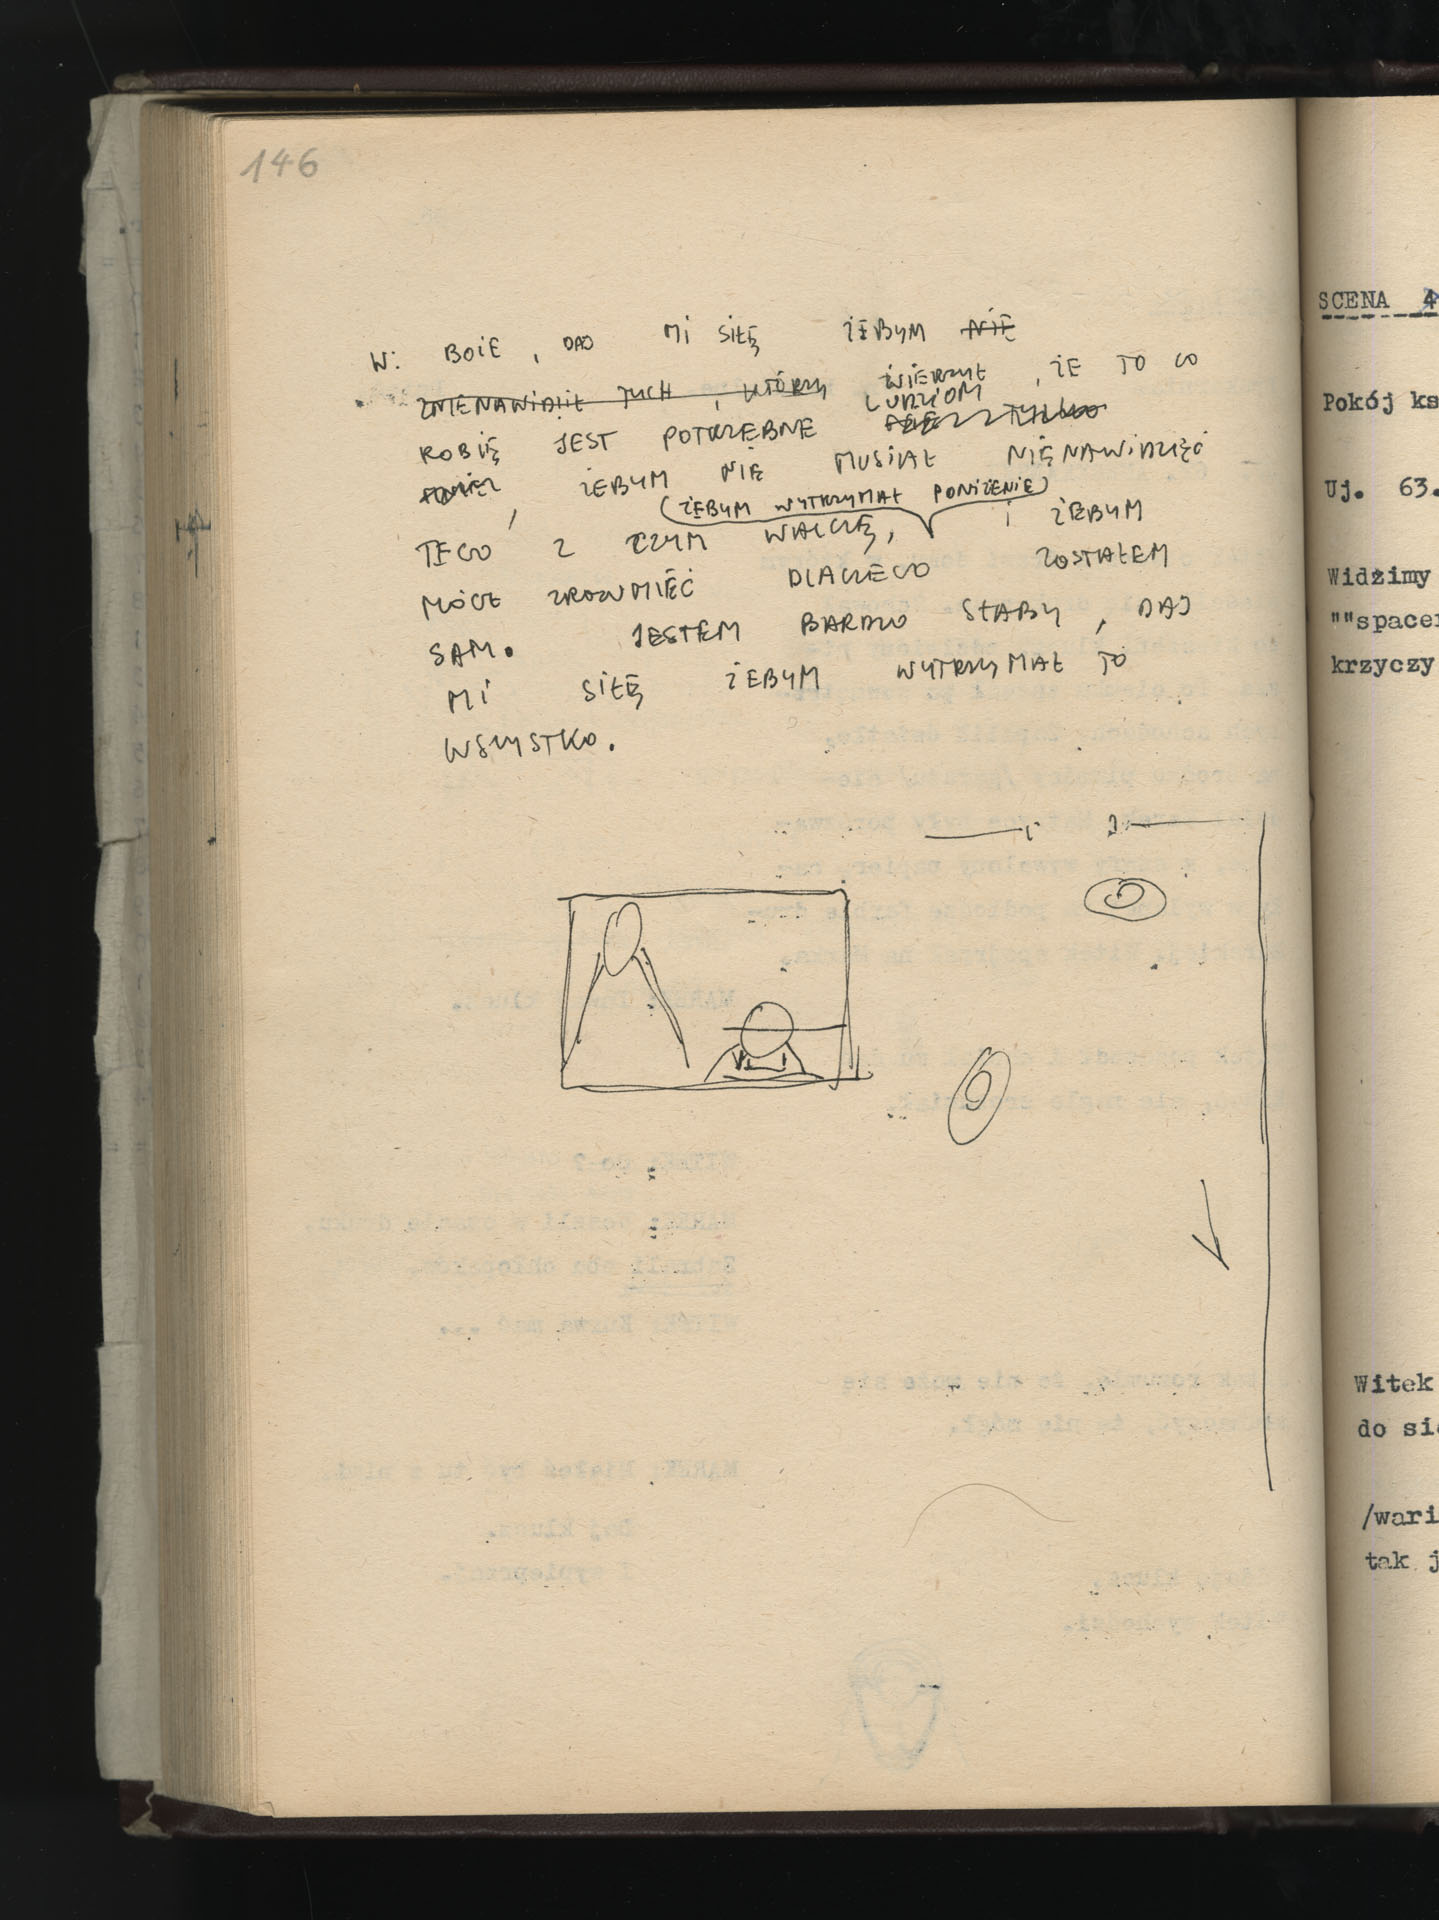 146
W: BOŻE, DAJ MI SIŁĘ ŻEBYM NIE
ZNIENAWIDZIŁ TYCH, KTÓRZY WIERZYŁ, ŻE TO CO
ROBIĘ JEST POTRZEBNE LUDZIOM
ŻEBYM NIE MUSIAŁ NIENAWIDZIEĆ
(ŻEBYM WYTRZYMAŁ PONIŻENIE)
TEGO Z CZYM WALCZĘ, I ŻEBYM
MÓGŁ ZROZUMIEĆ DLACZEGO ZOSTAŁEM
SAM. JESTEM BARDZO SŁABY, DAJ
MI SIŁĘ ŻEBYM WYTRZYMAŁ TO
WSZYSTKO.
SCENA 4
Pokój ks
Uj. 63.
Widzimy
""spacer
krzyczy
Witek
do sie
/wari
tak j